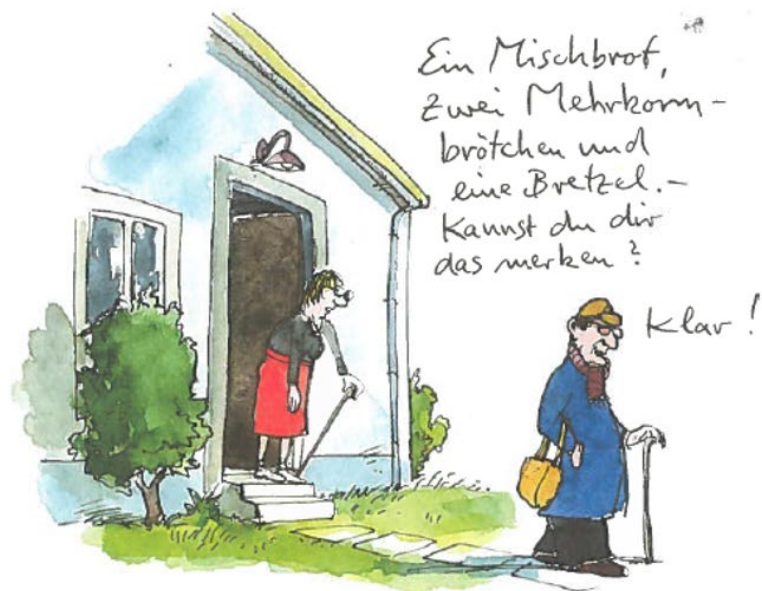 Ein Mischbrot,
zwei Mehrkorn-
brötchen und
eine Bretzel.-
Kannst du dir
das merken?
Klar!